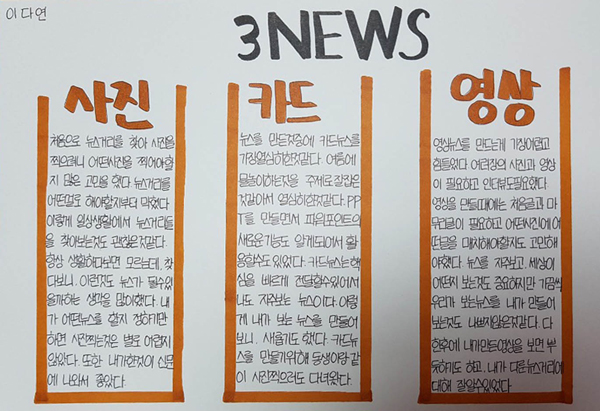 이다연
3NEWS
사진
처음으로 뉴스거리를 찾아 사진을
찍으려니 어떤사진을 찍어야할
지 많은 고민을 했다 뉴스거리를
어떤걸로 해야할지부터 막혔다
이렇게 일상생활에서 뉴스거리들
을 찾아보는것도 괜찮은것같다.
항상 생활하다보면 모르는데, 찾
다보니, 이런것도 뉴스가 될수있
을까하는 생각을 많이했다. 내
가 어떤뉴스를 할지 정하기만
하면 사진찍는것은 별로 어렵지
않았다. 또한 내가한것이 신문
에 나와서 좋았다.
카드
뉴스를 만든것중에 카드뉴스를
가장열심히한것같다. 여름에
물놀이하는것을 주제로 잘잡은
것같아서 열심히한것같다. PP
T를 만들면서 파워포인트의
새로운기능도 알게되어서 활
용할수도있었다. 카드뉴스는 핵
심을 빠르게 전달할수있어서
나도 자주보는 뉴스이다. 이렇
게 내가 보는 뉴스를 만들어
보니, 새롭기도 했다. 카드뉴
스를 만들기위해 동생이랑 같
이 사진찍으러도 다녀왔다.
영상
영상뉴스를 만드는게 가장어렵고
힘들었다. 여러장의 사진과 영상
이 필요하고 인터뷰도필요했다.
영상을 만들때에는 처음글과 마
무리글이 필요하고 어떤사진에 어
떤글을 매치해야할지도 고민해
야했다. 뉴스를 자주보고, 세상이
어떤지 보는것도 중요하지만 가끔씩
우리가 보는뉴스를 내가 만들어
보는것도 나쁘지않은것같다. 다
한후에 내가만든영상을 보면 뿌
듯하기도 하고, 내가 다룬뉴스거리에
대해 잘알수있었다.